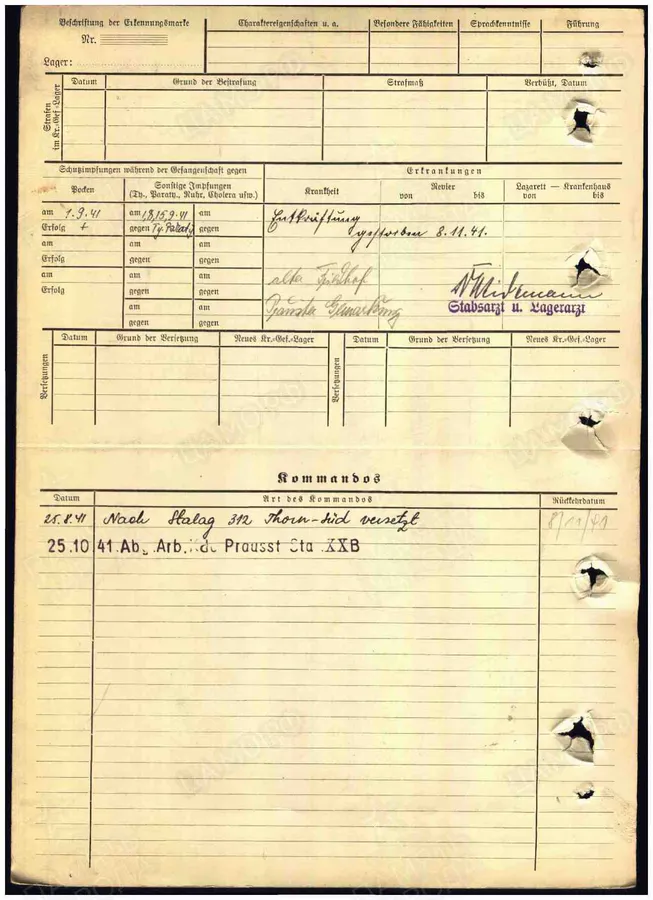 Beschriftung der Erkennungsmarke
Nr.
Lager:
Charaktereigenschaften u. a.
Besondere Fähigkeiten
Sprachkenntnisse
Führung
Strafen im Kr.-Gef.-Lager
Datum
Grund der Bestrafung
Strafmaß
Verbüßt, Datum
Schutzimpfungen während der Gefangenschaft gegen
Erkrankungen
Pocken
Sonstige Impfungen
(Ty., Paraty., Ruhr, Cholera usw.)
Krankheit
Revier
von bis
Lazarett — Krankenhaus
von bis
am 1.9.41 am 1,8,15,9.41 am
Erfolg + gegen Ty. gegen
Entkräftung
gestorben 8.11.41.
am am am
Erfolg gegen gegen
am am am
Erfolg gegen gegen
am am
gegen gegen
alter Friedhof
Gemarkung
Stabsarzt u. Lagerarzt
Versetzungen
Datum
Grund der Versetzung
Neues Kr.-Gef.-Lager
Versetzungen
Datum
Grund der Versetzung
Neues Kr.-Gef.-Lager
Kommandos
Datum
Art des Kommandos
Rückkehrdatum
25.8.41 Nach Stalag 312 Thorn-Süd versetzt 8/11/41
25.10 41. Ab Arb. Kdo Prausst Sta XXB
LAMORU